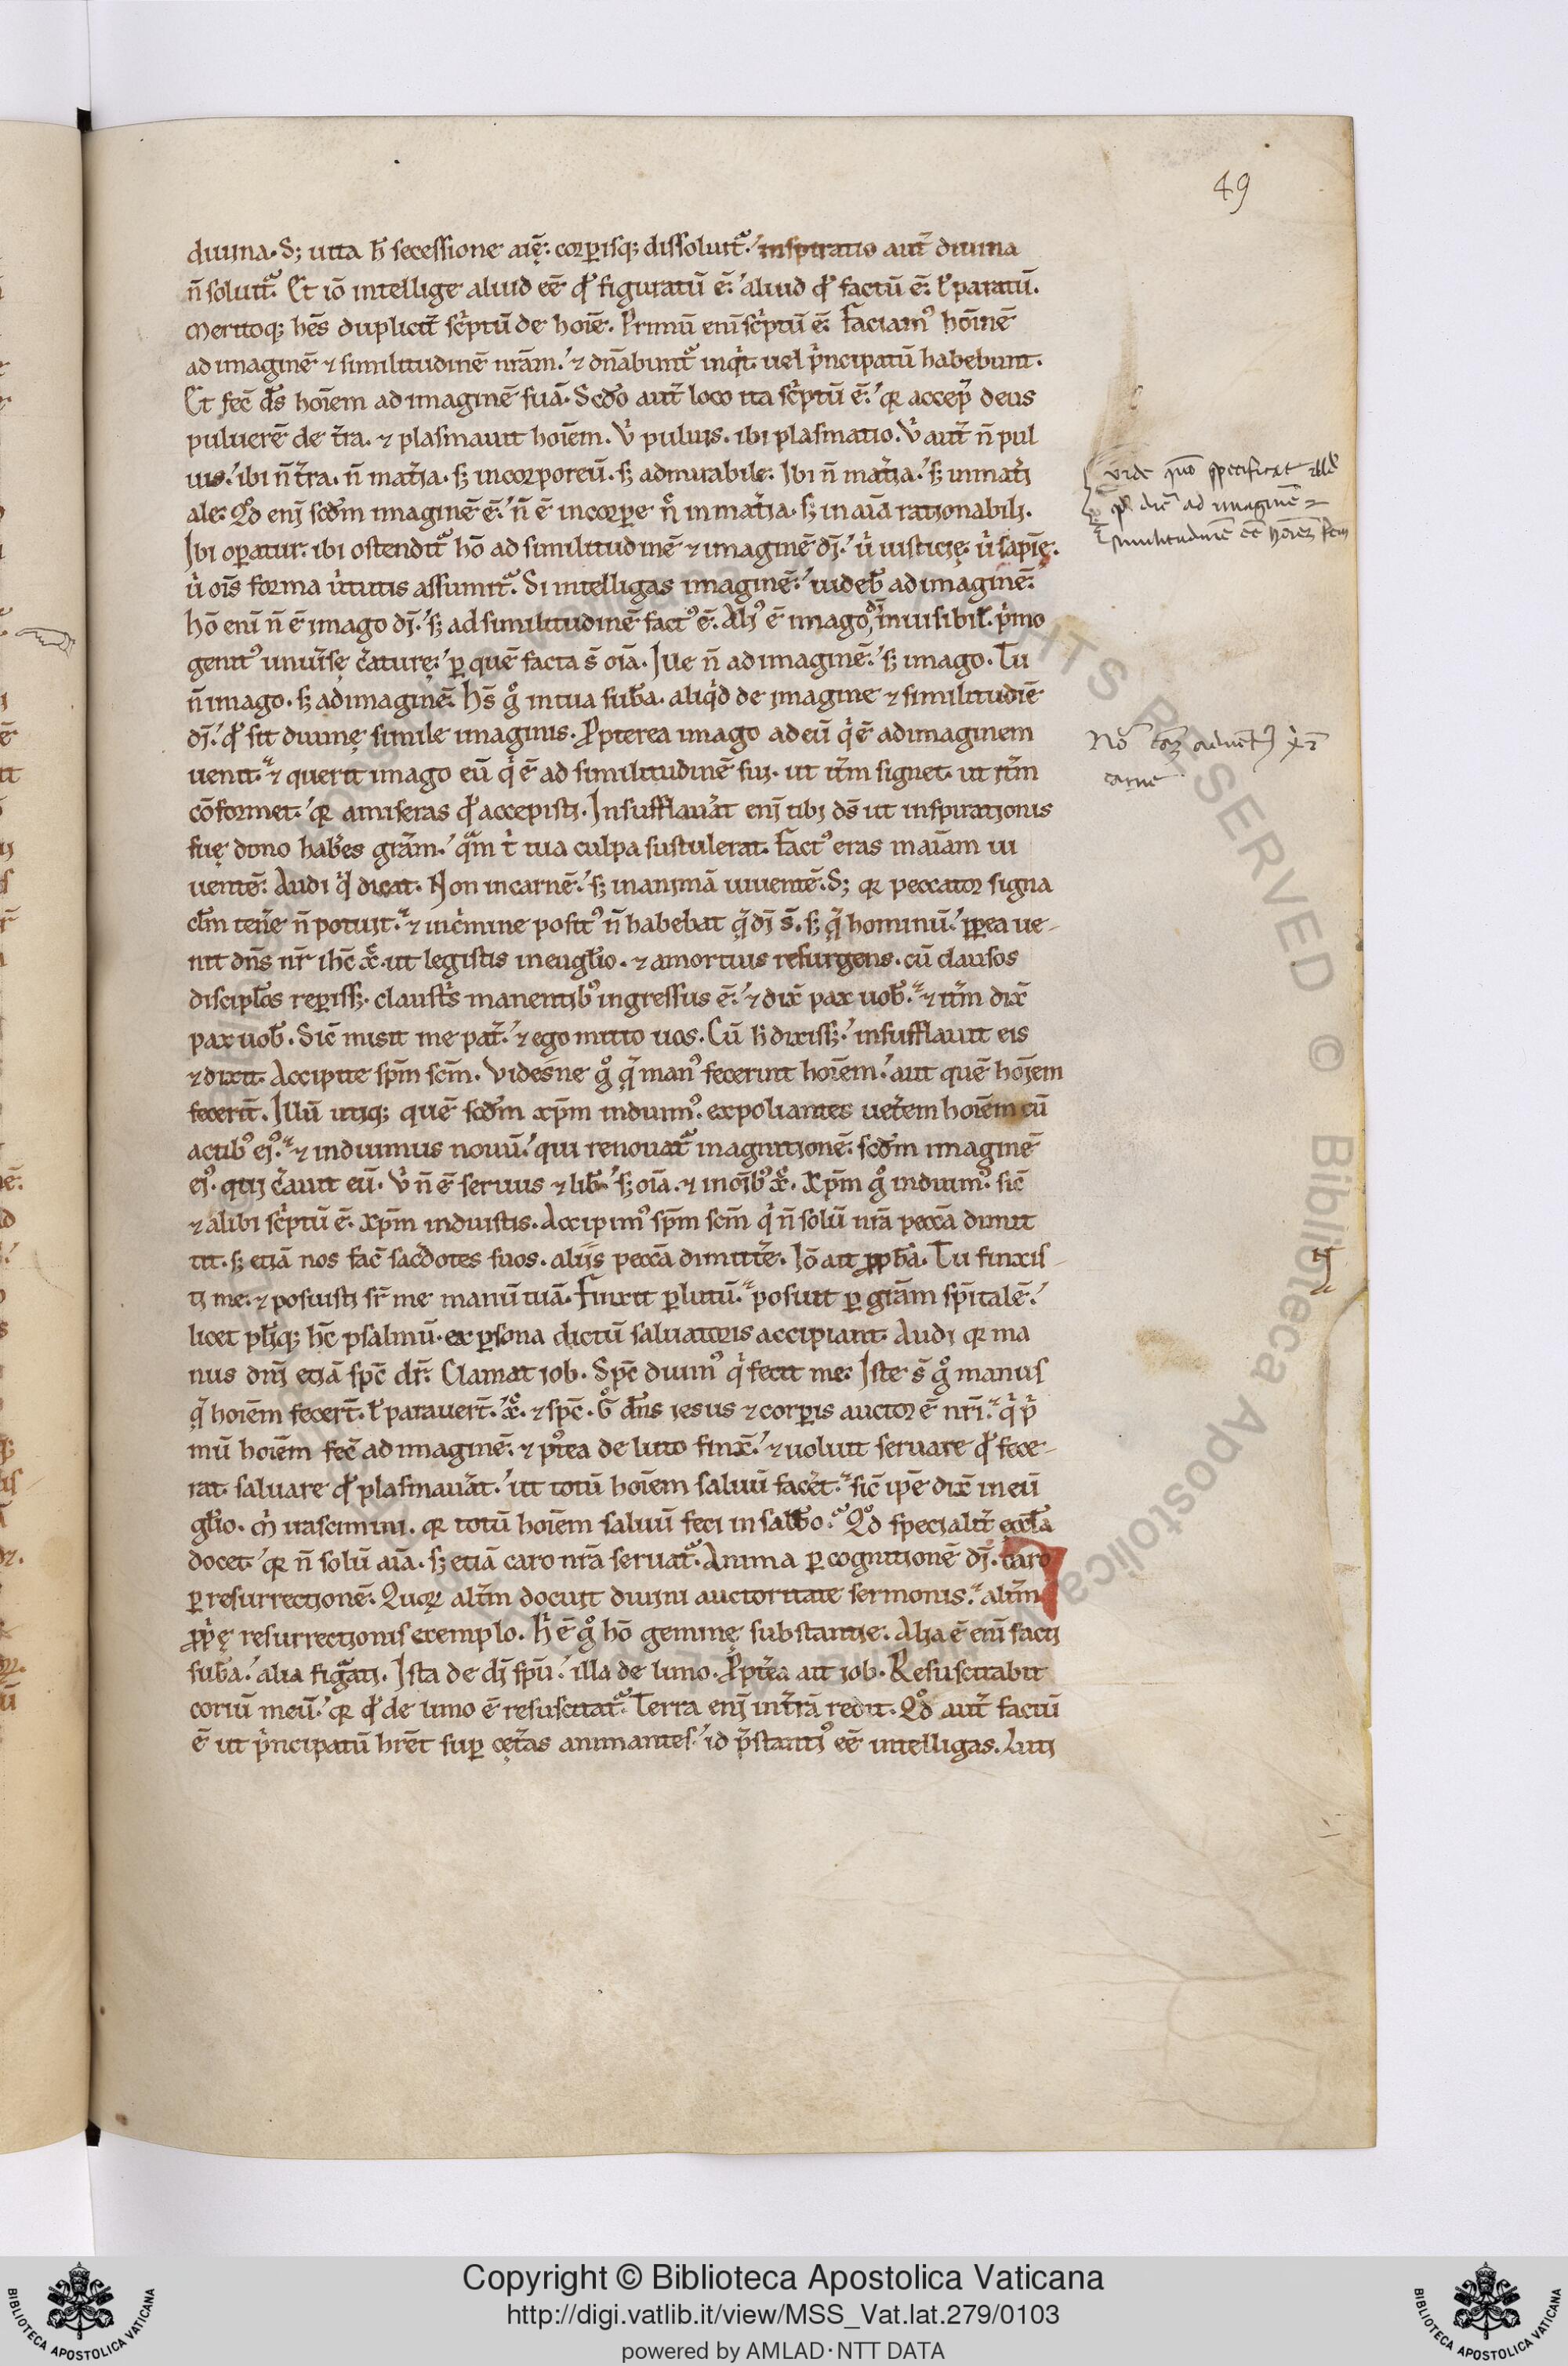 49
diuina. S; uita h̄ secessione aīę. corꝑisq; dissoluit᷑. inspiratio aut̄ diuina
n̄ soluit᷑. Et iō intellige aliud eē qd̓ figuratū ē. aliud qd̓ factū ē. ł paratū.
Meritoq; hēs duplicit̄ sc̓ptū de hoīe. Primū enī sc̓ptū ē. Faciam᷒ hoīnē
ad imaginē ⁊ similitudinē nr̄am. ⁊ dn̄abunt᷑ inqt̓. uel p̓ncipatū habebunt.
Et fec̄ ds̄ hoīem ad imaginē suā. Scd̄o aut̄ loco ita sc̓ptū ē. qꝛ accep̄ deus
puluerē de t̄ra. ⁊ plasmauit hoīem. U̓ puluis. ibi plasmatio. U̓ aut̄ n̄ pul
uis. ibi n̄ t̄ra. n̄ mat̄ia. sꝫ incorporeū. sꝫ admirabile. Ibi n̄ mat̄ia. sꝫ inmat̄i
ale. Qd̓ enī scd̄m imaginē ē. n̄ ē incorꝑe n̄ in mat̄ia. sꝫ in aīa rationabili.
Ibi oꝑatur. ibi ostendit᷑ hō ad similitudinē ⁊ imaginē dī. u̓ iusticię. u̓ sapīę.
u̓ oīs forma u̓tutis assumit᷑. Si intelligas imaginē. uideb̄ ad imaginē.
hō enī n̄ ē imago dī. sꝫ ad similitudinē fact᷒ ē. Ali᷒ ē imago dī inuisibil̄. p̓mo
genit᷒ uniūsę c̓aturę. ꝑ quē facta s̄ oīa. Ille n̄ ad imaginē. sꝫ imago. Tu
n̄ imago. sꝫ ad imaginē. Hs̄ g̊ in tua sub̄a. aliqd̓ de imagine ⁊ similitudīe
dī. qd̓ sit diuinę simile imaginis. Ꝓpterea imago ad eū q̓ ē ad imaginem
uenit. ⁊ querit imago eū q̓ ē ad similitudinē sui. ut it̄m signet. ut it̄m
cōformet. qꝛ amiseras qd̓ accepisti. Insufflauāt enī tibi ds̄ ut inspirationis
suę dono hab̄es grām. quā t̓ tua culpa sustulerat. Fact᷒ eras in aīam ui
uentē. Audi qd̓ dicat. Non in carnē. sꝫ in animā uiuentē. S; qꝛ peccator signa
clm̄ ten̄e n̄ potuit. ⁊ in c̓mine posit᷒ n̄ habebat q̨ dī s̄. sꝫ q̨ hominū. ꝓpea ue-
nit dn̄s nr̄ ihc̄ xc̄. ut legistis in euglīo. ⁊ a mortuis resurgens. cū clausos
discipłos reꝑissꝫ. claust̓s manentib᷒ ingressus ē. ⁊ dix̄ pax uob̄. ⁊ it̄m dix̄
pax uob̄. Sic̄ misit me pat̄. ⁊ ego mitto uos. Cū h̄ dixissꝫ. insufflauit eis
⁊ dixit. Accipite spm̄ scm̄. Videsne g̊ q̨ man᷒ fecerint hoīem. aut quē hoīem
fecerīt. Illū utiq; quē scd̄m xpm̄ induim᷒. expoliantes uet̄em hoīem cū
actib᷒ ei᷒. ⁊ induimus nouū. qui renouat᷑ in agnitionē. scd̄m imaginē
ei᷒. qui c̓auit eū. U̓ n̄ ē seruus ⁊ lib̄. sꝫ oīa. ⁊ in oīb᷒ xc̄. Xpm̄ g̊ induim᷒. sic̄
⁊ alibi sc̓ptū ē. xpm̄ induistis. Accipim᷒ spm̄ scm̄ q̓ n̄ solū nr̄a peccā dimit
tit. sꝫ etiā nos fac̄ sac̄dotes suos. aliis peccā dimitt̄e. Iō ait ꝓph̄a. Tu finxis-
ti me. ⁊ posuisti sr̄ me manū tuā. Finxit ꝑ lutū. posuit ꝑ grām spītalē.
licet pliq; hc̄ psalmū. ex ꝑsona dictū saluatoris accipiant. Audi qꝛ ma
nus dnī etiā spc̄ dr̄. Clamat iob. Spc̄ diuin᷒ q̓ fecit me. Iste s̄ g̊ manus
q̨ hoīem fecer̄t. ł parauer̄t. xc̄. ⁊ spc̄. G̊ dn̄s iesus ⁊ corꝑis auctor ē nr̄i. q̓ p̓
mū hoīem fec̄ ad imaginē. ⁊ p᷒tea de luto finx̄. ⁊ uoluit seruare qd̓ fece-
rat. saluare qd̓ plasmauāt. ut totū hoīem saluū fac̄et. sic̄ ipē dix̄ in eū
glīo. m̓ irascimini. qꝛ totū hoīem saluū feci in sabb̄o. Qd̓ specialit̄ ęcclā
docet. qꝛ n̄ solū aīa. sꝫ etiā caro nr̄a seruat᷑. Anima ꝑ cognitionē dī. caro
ꝑ resurrectionē. Quoꝝ alt̄m docuit diuini auctoritate sermonis. alt̄m
ꝓp̓ę resurrectionis exemplo. H̓ ē g̊ hō geminę substantie. Alia ē enī facti
sub̄a. alia figāti. Ista de dī spū. illa de limo. Ꝓpt̄ea ait iob. Resuscitabit
coriū meū. qꝛ qd̓ de limo ē resuscitat᷑. Terra enī in t̄rā redit. Qd̓ aut̄ factū
ē ut p̓ncipatū hr̄et suꝑ cęt̄as animantes. id p̄stanti᷒ eē intelligas. Luti
Copyright © Biblioteca Apostolica Vaticana
http://digi.vatlib.it/view/MSS_Vat.lat.279/0103
powered by AMLAD·NTT DATA